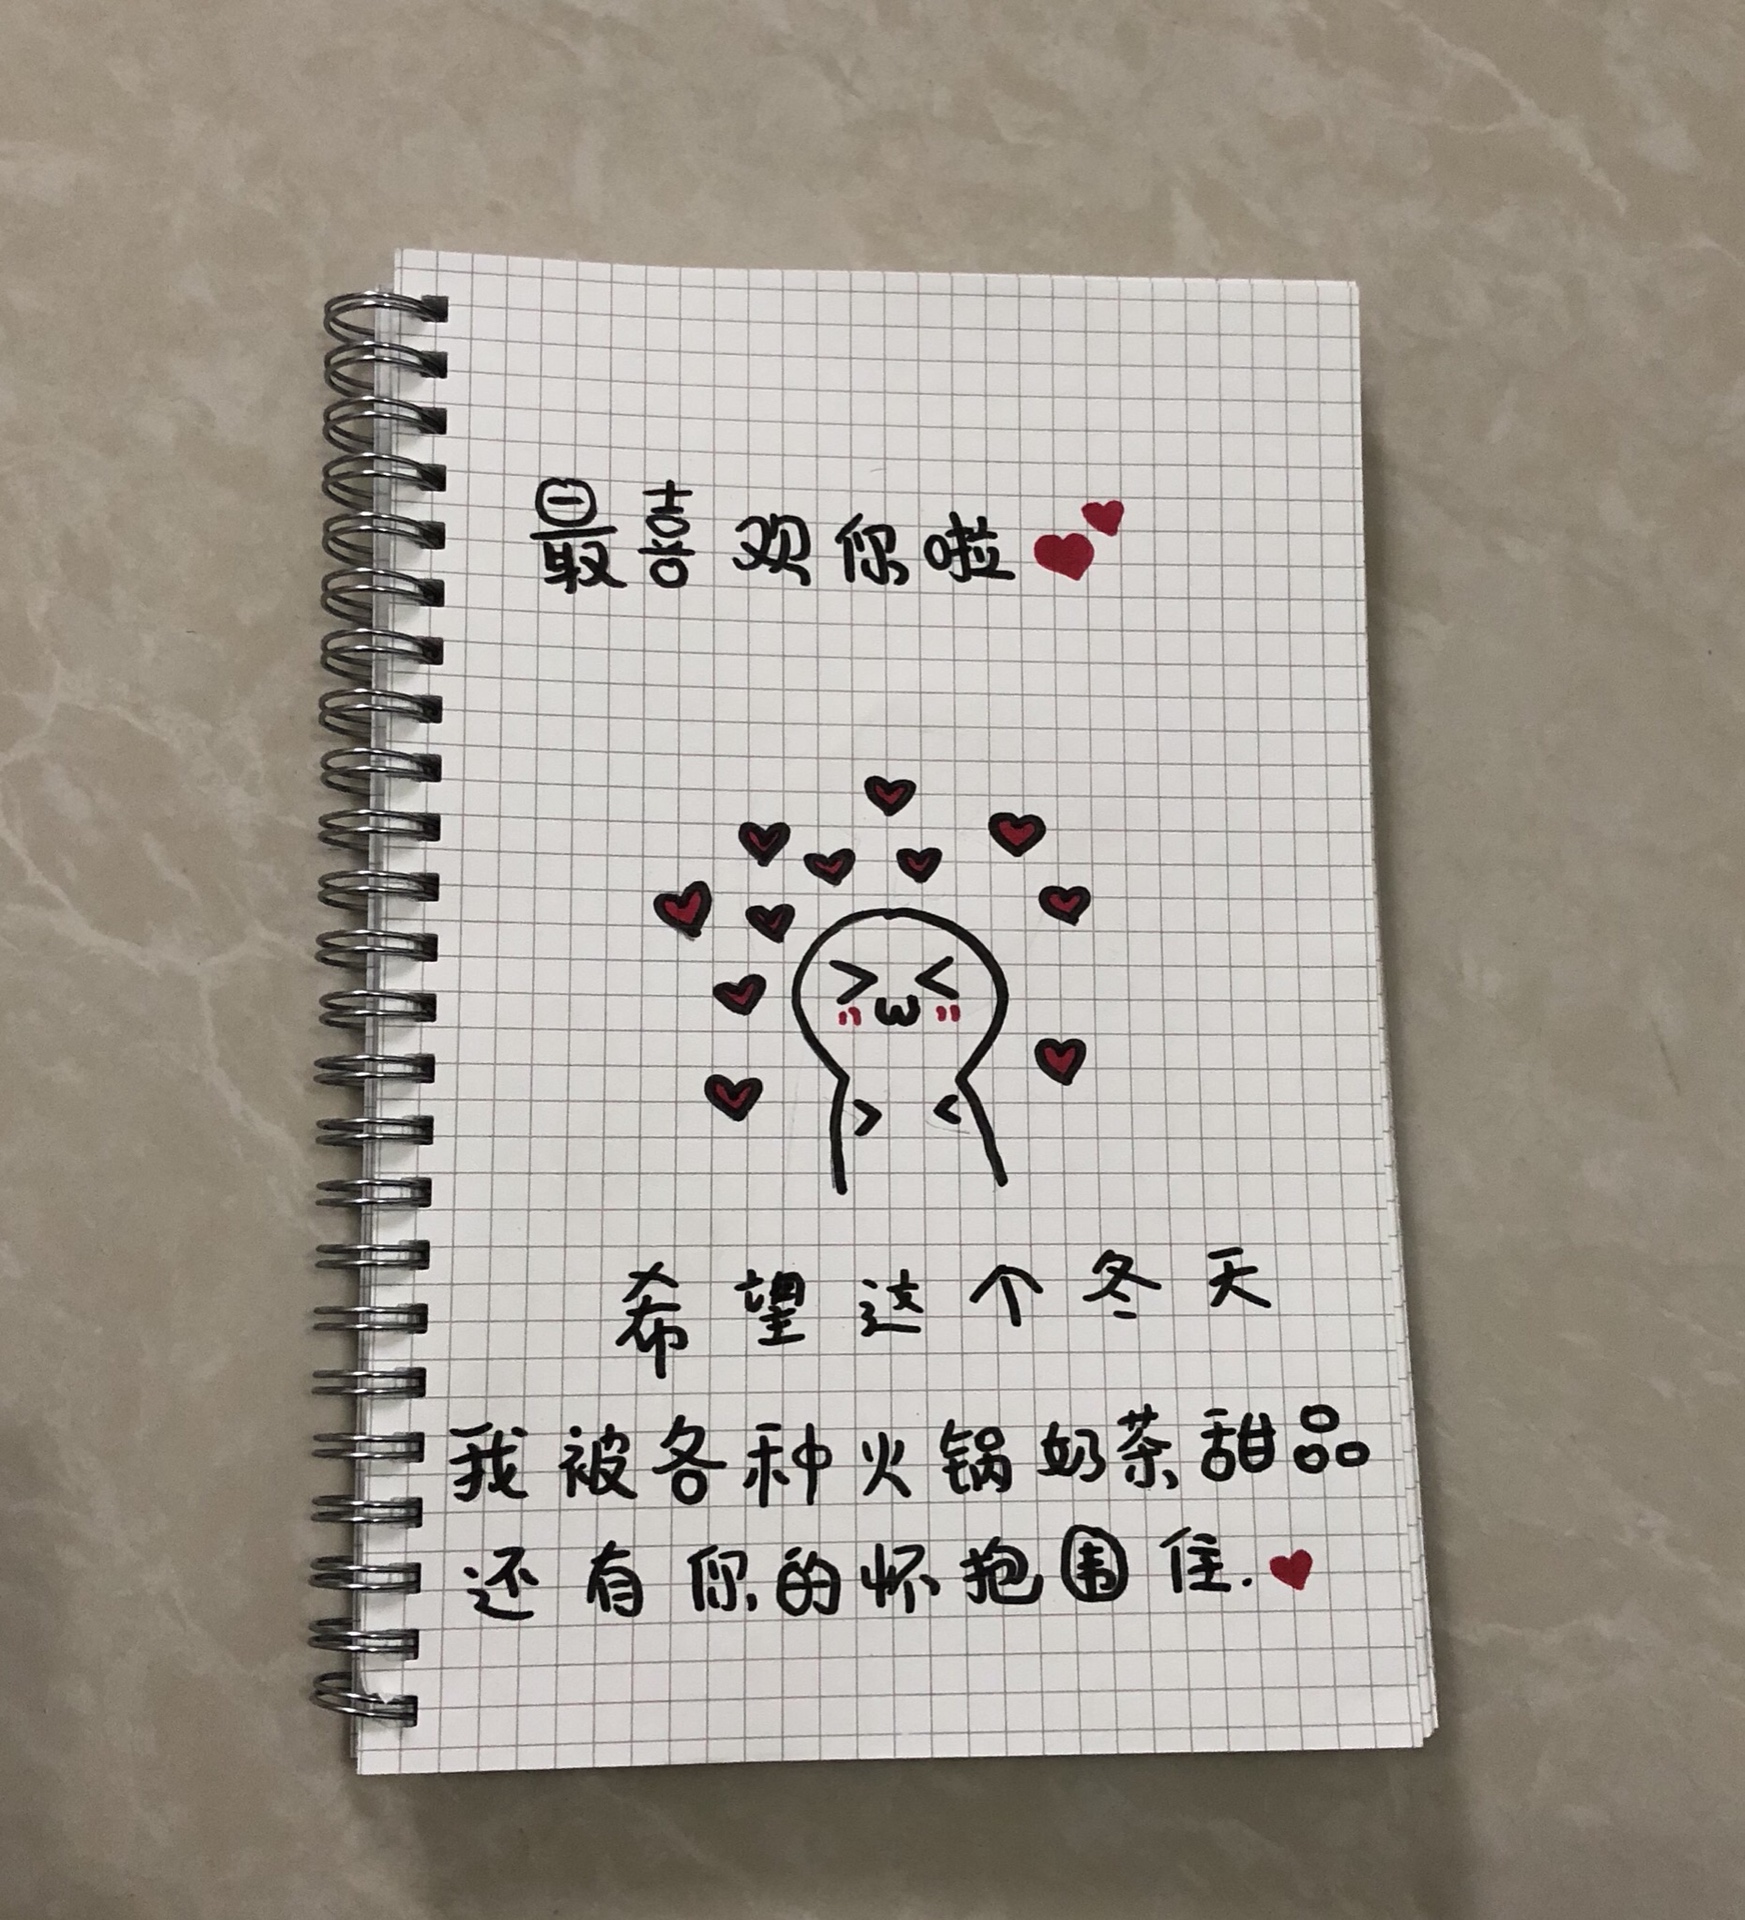 最喜欢你啦
希望这个冬天
我被各种火锅奶茶甜品
还有你的怀抱围住.